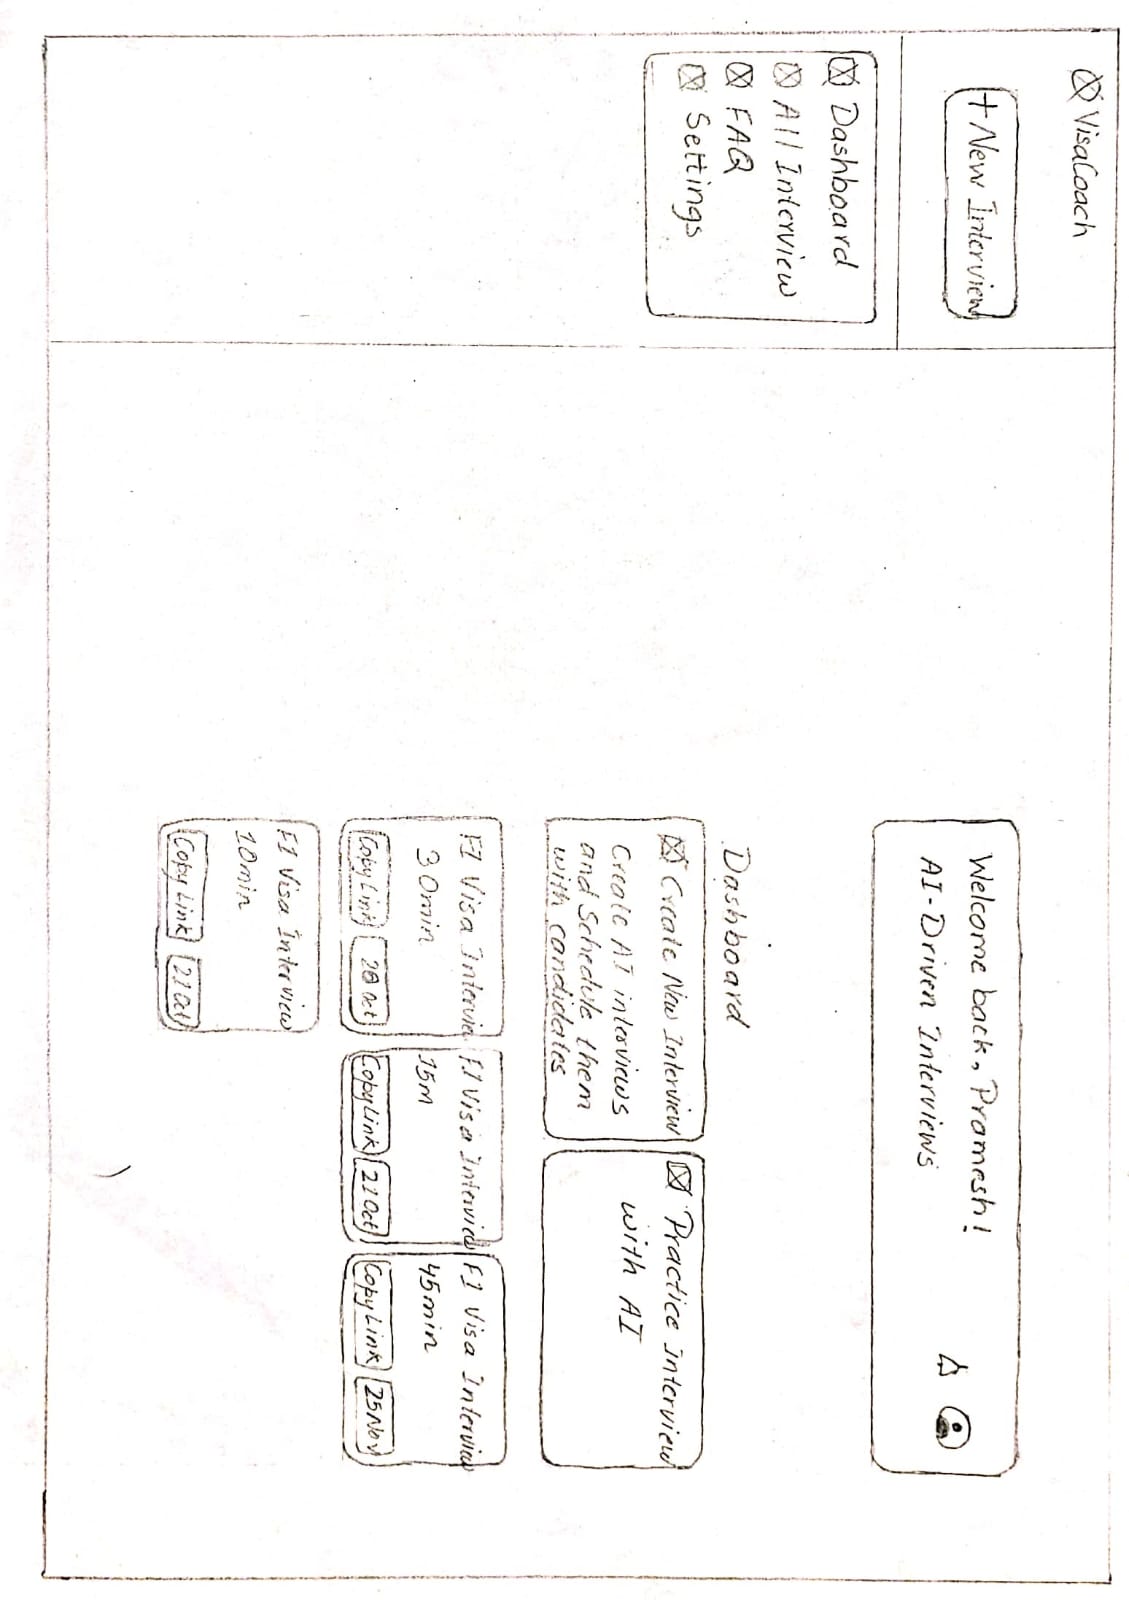 VisaCoach
+ New Interview
Dashboard
All Interview
FAQ
Settings
Welcome back, Pramesh!
AI-Driven Interviews
Dashboard
Create New Interview
Create AI interviews
and Schedule them
with candidates
Practice Interview
with AI
F1 Visa Intervie
30min
Copy Link
20 Oct
F1 Visa Interview
15m
Copy Link
21 Oct
F1 Visa Interview
45min
Copy Link
25 Nov
F1 Visa Interview
10min
Copy Link
21 Oct